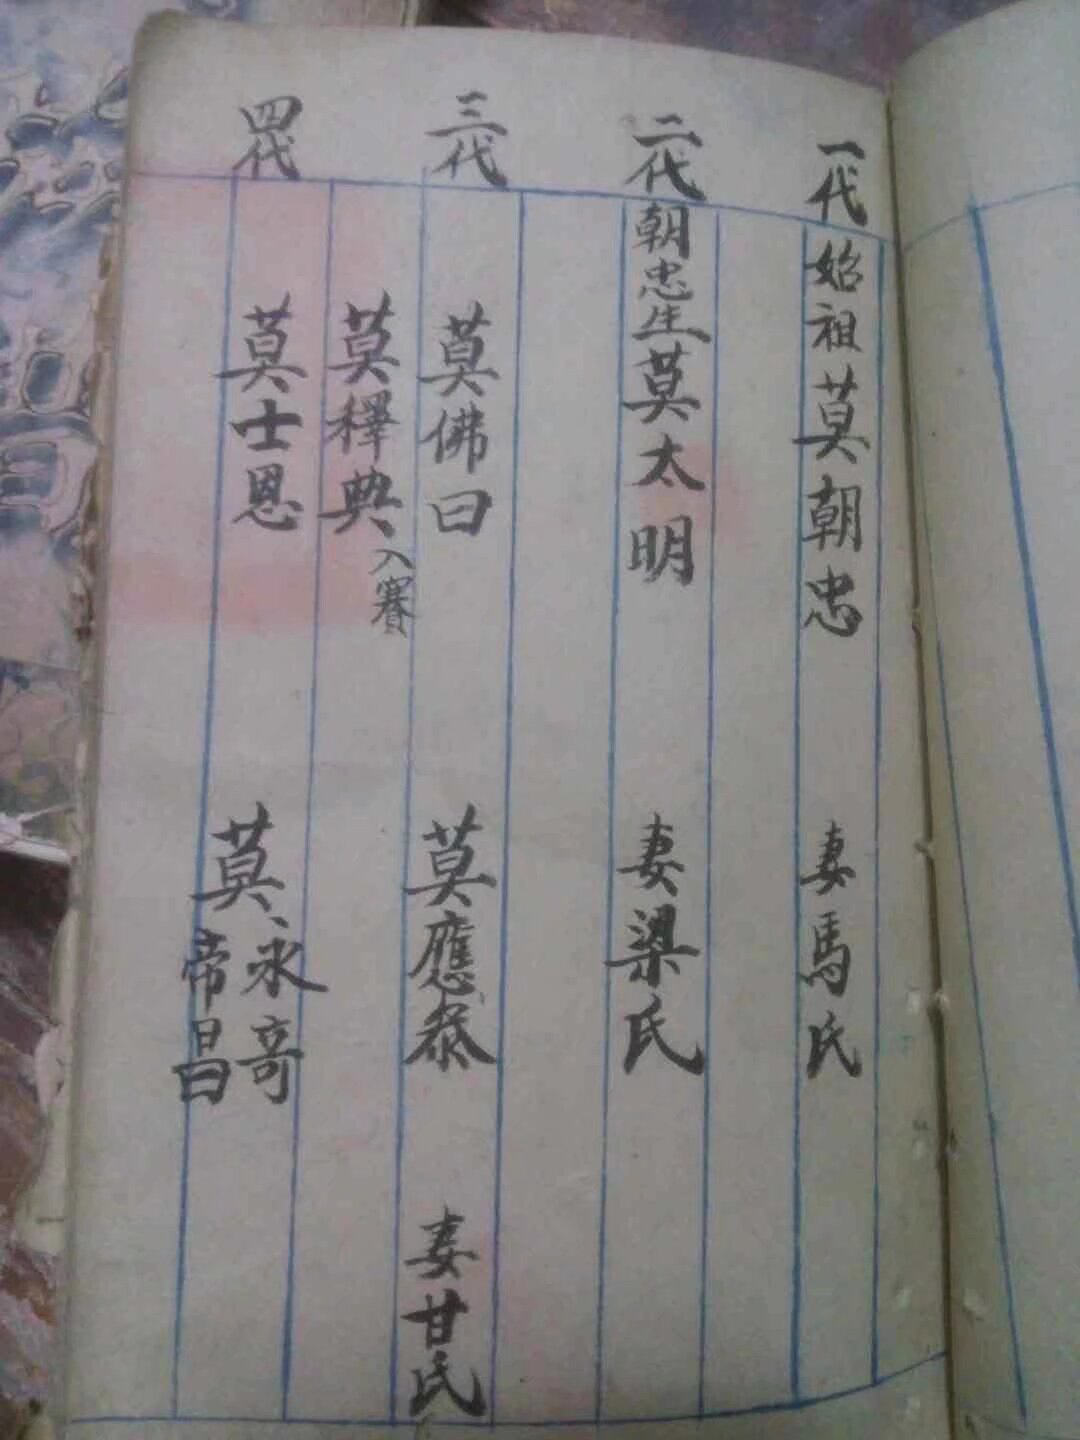 一代 始祖莫朝忠 妻馬氏
二代 朝忠生莫太明 妻梁氏
三代 莫佛曰 莫應泰 妻甘氏
莫釋典 入賽
四代 莫士恩 莫永奇
帝昌曰